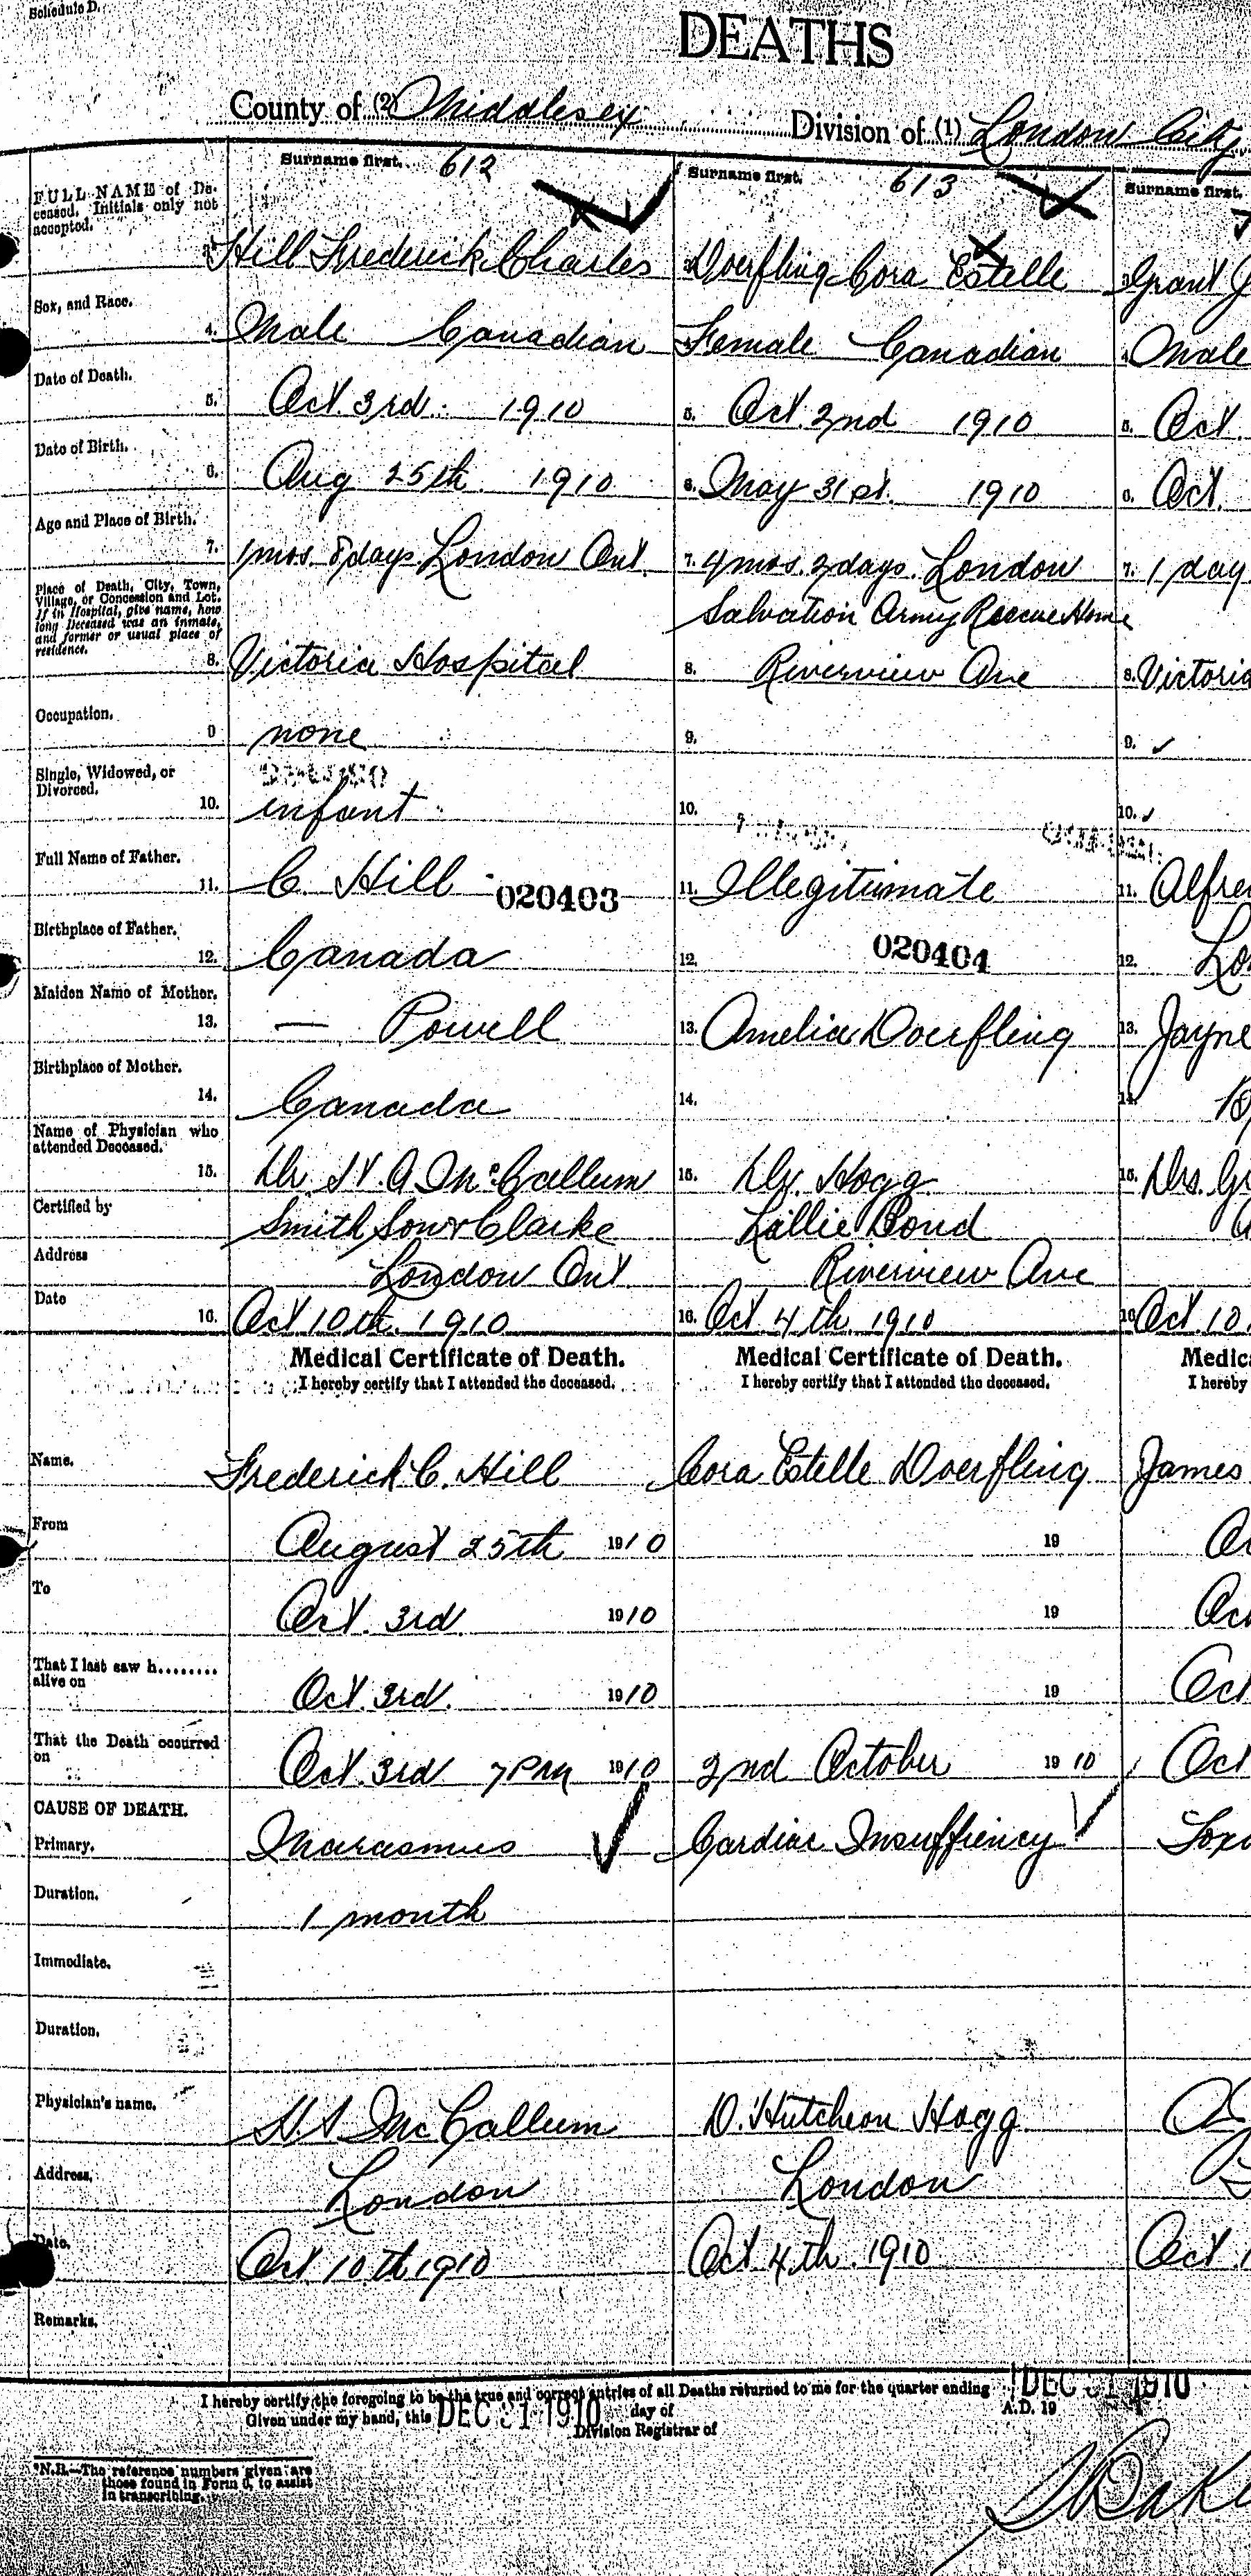 Schedule D.
DEATHS
County of (2) Middlesex Division of (1) London City
Surname first. 612 Surname first. 613 Surname first.
FULL NAME of De-
ceased. Initials only not
accepted.
Hill Frederick Charles Doerfling Cora Estelle Grant J
Sex, and Race.
4. Male Canadian Female Canadian 4. Male
Date of Death.
5. Oct 3rd 1910 5. Oct 2nd 1910 5. Oct
Date of Birth.
6. Aug 25th 1910 6. May 31st. 1910 6. Oct.
Age and Place of Birth.
7. 1 mos. 8 days London Ont. 7. 4 mos. 2 days. London 7. 1 day
Place of Death, City, Town,
Village, or Concession and Lot.
If in Hospital, give name, how
long Deceased was an inmate,
and former or usual place of
residence.
Salvation Army Rescue Home
8. Victoria Hospital 8. Riverview Ave 8. Victoria
Occupation.
9 none 9. 9.
Single, Widowed, or
Divorced.
10. infant 10. 10.
Full Name of Father.
11. C. Hill 020403 11. Illegitimate 11. Alfre
Birthplace of Father.
12. Canada 12. 020404 12. Lon
Maiden Name of Mother.
13. — Powell 13. Amelia Doerfling 13. Jayne
Birthplace of Mother.
14. Canada 14. 14.
Name of Physician who
attended Deceased.
15. Dr H A McCallum 15. Dr. Hogg 15. Drs. Gr
Certified by Smith Son & Clarke Lallie Bond
Address London Ont Riverview Ave
Date
16. Oct 10th. 1910 16. Oct 4th. 1910 16 Oct 10.
Medical Certificate of Death. Medical Certificate of Death. Medica
I hereby certify that I attended the deceased. I hereby certify that I attended the deceased. I hereby
Name. Frederick C. Hill Cora Estelle Doerfling James
From August 25th 1910 19
To Oct. 3rd. 1910 19
That I last saw h........
alive on Oct. 3rd. 1910 19 Oct
That the Death occurred
on Oct. 3rd 7 PM 1910 2nd October 1910 Oct
CAUSE OF DEATH.
Primary. Marasmus Cardiac Insuffiency Toxi
Duration. 1 month
Immediate.
Duration.
Physician's name. H. A McCallum D. Hutcheon Hogg
Address. London London
Date. Oct. 10th 1910 Oct 4th. 1910 Oct. 1
Remarks.
I hereby certify the foregoing to be the true and correct entries of all Deaths returned to me for the quarter ending DEC 31 1910
Given under my hand, this DEC 31 1910 day of A.D. 19
Division Registrar of
*N.B.—The reference numbers given are
those found in Form 6, to assist
in transcribing.